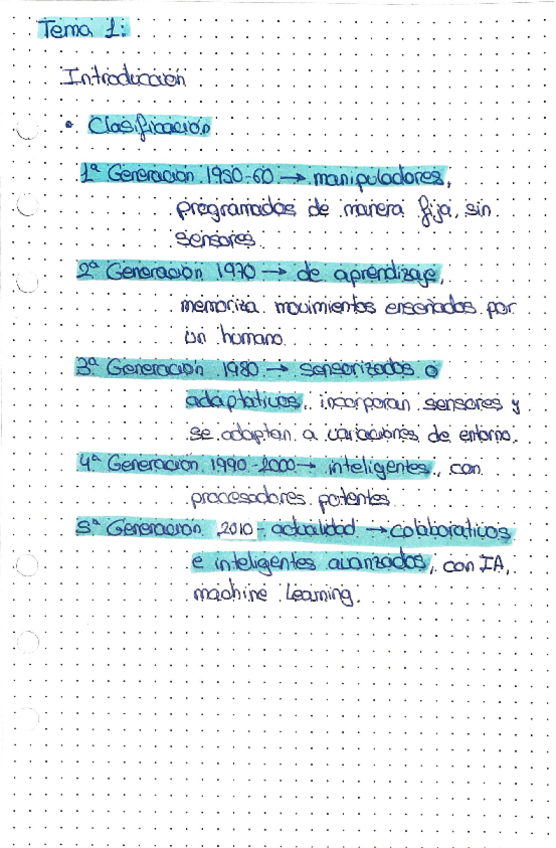 Tema 1:
Introducción
• Clasificación
1ª Generación 1950-60 → manipuladores,
programados de manera fija, sin
sensores.
2ª Generación 1970 → de aprendizaje,
memoriza movimientos enseñados por
un humano.
3ª Generación 1980 → sensorizados o
adaptativos, incorporan sensores y
se adaptan a variaciones de entorno.
4ª Generación 1990-2000 → inteligentes, con
procesadores potentes
5ª Generación 2010 - actualidad → colaborativos
e inteligentes avanzados, con IA,
machine Learning.